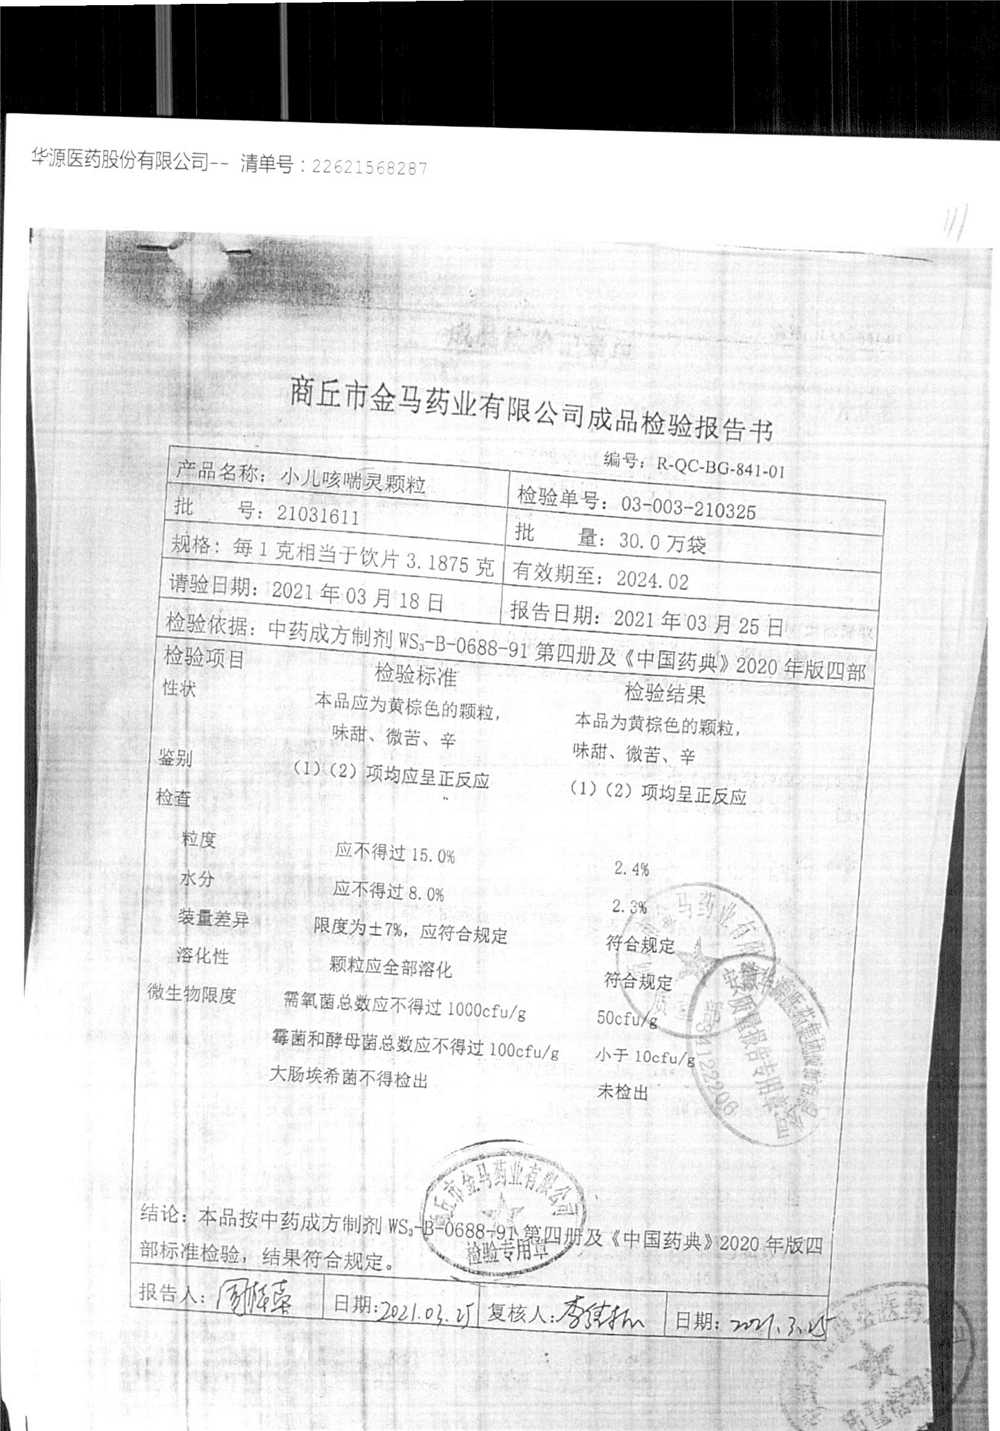 华源医药股份有限公司-- 清单号：22621568287
商丘市金马药业有限公司成品检验报告书
编号：R-QC-BG-841-01
产品名称：小儿咳喘灵颗粒 检验单号：03-003-210325
批 号：21031611 批 量：30.0万袋
规格：每1克相当于饮片3.1875克 有效期至：2024.02
请验日期：2021年03月18日 报告日期：2021年03月25日
检验依据：中药成方制剂WS₃-B-0688-91第四册及《中国药典》2020年版四部
检验项目 检验标准 检验结果
性状 本品应为黄棕色的颗粒， 本品为黄棕色的颗粒，
味甜、微苦、辛 味甜、微苦、辛
鉴别 （1）（2）项均应呈正反应 （1）（2）项均呈正反应
检查
粒度 应不得过15.0% 2.4%
水分 应不得过8.0% 2.3%
装量差异 限度为±7%，应符合规定 符合规定
溶化性 颗粒应全部溶化 符合规定
微生物限度 需氧菌总数应不得过1000cfu/g 50cfu/g
霉菌和酵母菌总数应不得过100cfu/g 小于10cfu/g
大肠埃希菌不得检出 未检出
结论：本品按中药成方制剂WS₃-B-0688-91第四册及《中国药典》2020年版四
部标准检验，结果符合规定。
商丘市金马药业有限公司
检验专用章
报告人： 日期：2021.03.25 复核人： 日期：2021.3.25